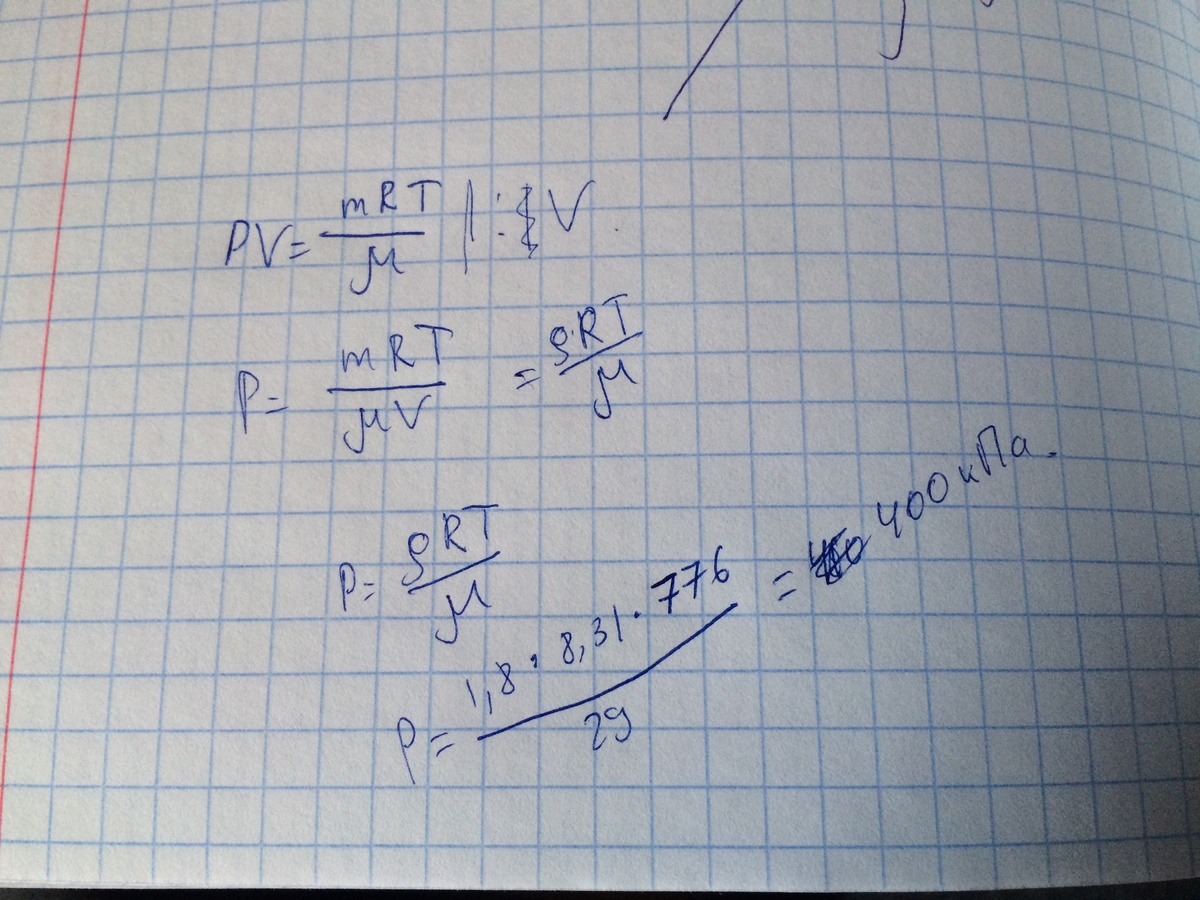 PV = mRT/μ | : V
P = mRT/μV = ρRT/μ
P = ρRT/μ
P = 1,8 · 8,31 · 776/29 = 400 кПа.